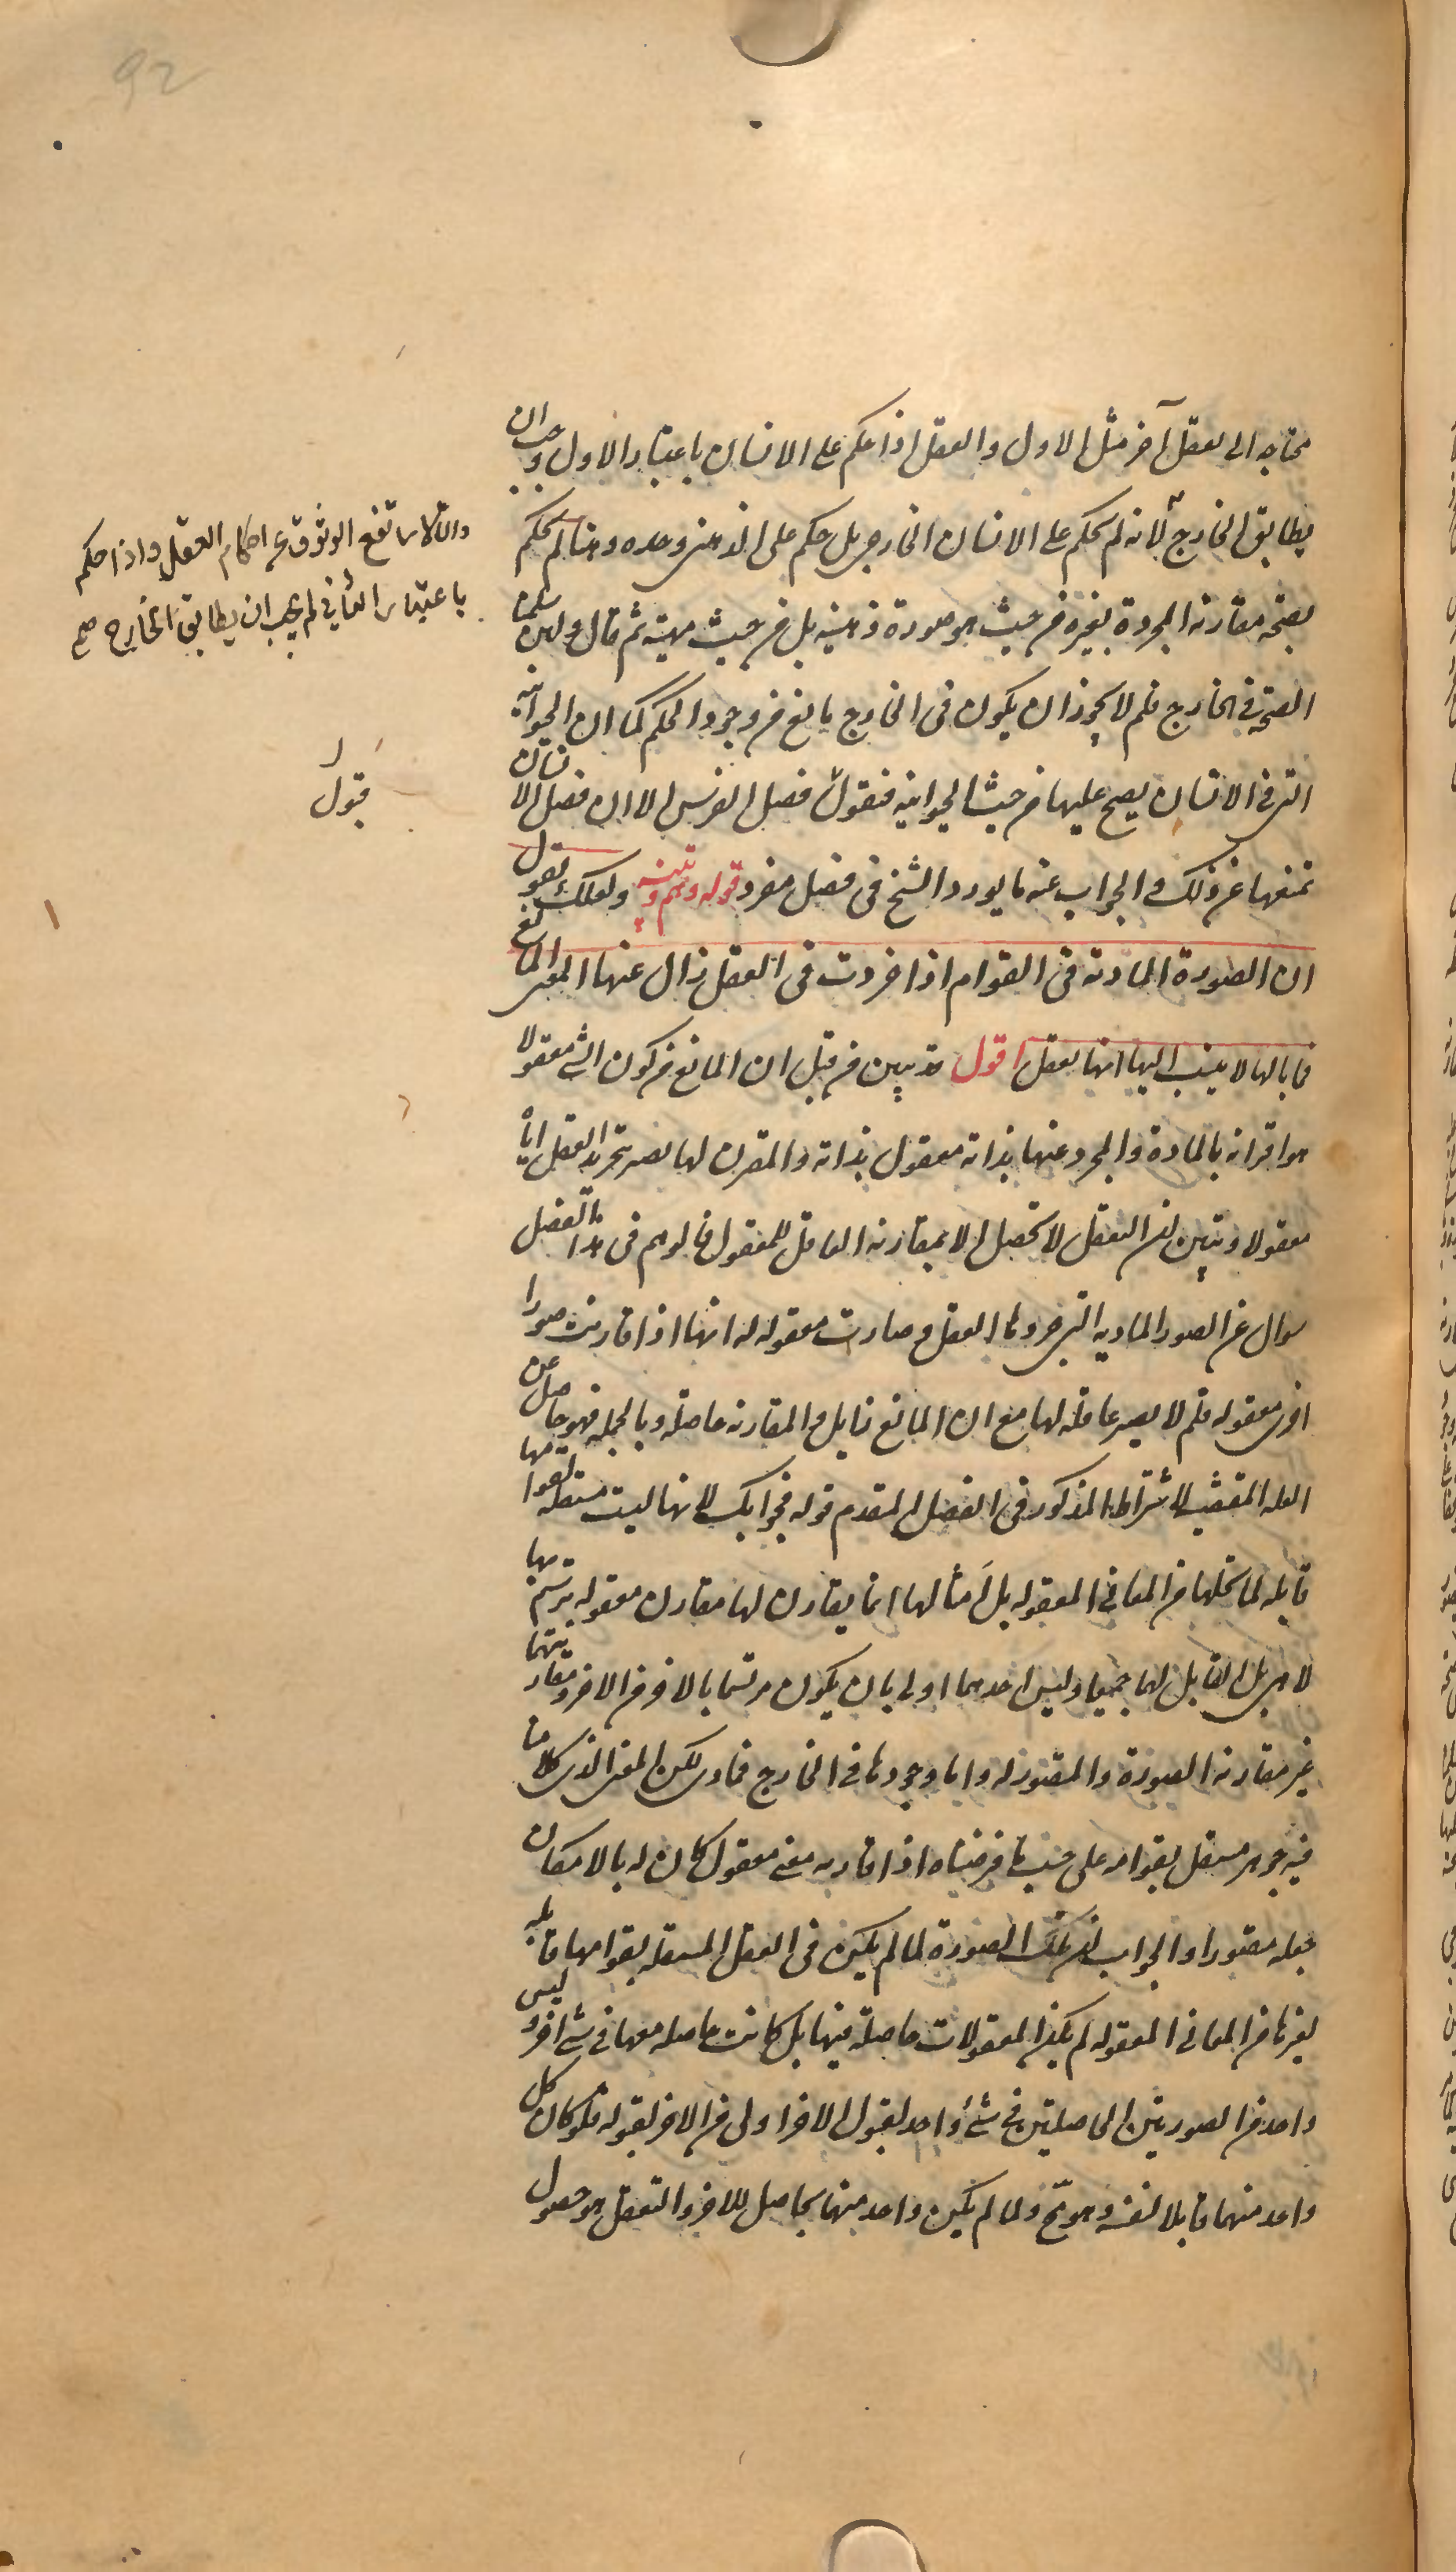 محتاجه الى تعقل آخر مثل الاول والعقل اذا حكم على الانسان باعتبار الاول وجب ان
يطابق الخارج لانه لم يحكم على الانسان الخارجى بل حكم على الذهنى وحده وههنا لم يحكم
بصحة مقارنة المجردة بغيره من حيث هو صورة ذهنية بل من حيث مهيته ثم قال ولئن سلمنا
الصحة في الخارج فلم لا يجوز ان يكون فى الخارج مانع من وجود الحكم كما ان الحيوانيه
التى فى الانسان يصح عليها من حيث الحيوانيه فصل الفرس الا ان فصل الانسان
تمنعها عن ذلك والجواب عنه ما يورد الشيخ فى فصل مفرد قوله وهم وتنبيه ولعلك تقول
ان الصورة المادية فى القوام اذا جردت فى العقل زال عنها المعنى المانع
فما بالها لا ينسب اليها انها تعقل اقول قد تبين من قبل ان المانع من كون الشئ معقولا
هو اقترانه بالمادة والمجرد عنها بذاته معقول بذاته والمقترن لها يصير بتجريد العقل اياه
معقولا وتبين ان التعقل لا تحصل الا بمقارنة العاقل للمعقول فالوهم فى هذا الفصل
سوال عن الصور الماديه التى جردها العقل وصارت معقوله له انها اذا قارنت صورا
اخرى معقوله فلم لا يصير عاقله لها مع ان المانع زايل والمقارنه حاصله وبالجمله فهو حاصل عن
العله المقتضيه لاشتراط المذكور فى الفصل المتقدم قوله فجوابك لانها ليست مستقله بقوامها
قابله لما يحلها من المعانى المعقوله بل امثالها انما يقارن لها مقارن معقوله يرتسم بها
لا هى بل القابل لهما جميعا وليس احدهما اولى بان يكون مرتسما بالاخر من الاخر ومقارنتهما
غير مقارنة الصورة والمتصور له واما وجودها فى الخارج فمادى لكن المعنى الذى كلامنا
فيه جوهر مستقل بقوامه على حسب ما فرضناه اذا قارنه معنى معقول كان له بالامكان
جعله متصورا والجواب ان تلك الصورة لما لم يكن فى العقل المستقله بقوامها قابله
لغيرها من المعانى المعقوله لم يكن المعقولات حاصلة فيها بل كانت حاصله معها فى شئ اخر وليس
واحد من الصورتين الحاصلتين فى شئ واحد لقبول الاخر اولى من الاخر لقبوله فلو كان كل
واحد منهما قابلا لنفسه وهو مح ولما لم يكن واحد منهما بحاصل للاخر والتعقل هو حصول
والا لارتفع الوثوق عن احكام العقل واذا حكم
باعتبار الثانى لم يجب ان يطابق الخارج صح
قبول
92